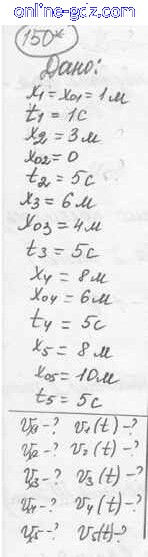 online-gdz.com
150*
Дано:
x₁ = x₀₁ = 1 м
t₁ = 1 с
x₂ = 3 м
x₀₂ = 0
t₂ = 5 с
x₃ = 6 м
x₀₃ = 4 м
t₃ = 5 с
x₄ = 8 м
x₀₄ = 6 м
t₄ = 5 с
x₅ = 8 м
x₀₅ = 10 м
t₅ = 5 с
V₁-? V₁(t)-?
V₂-? V₂(t)-?
V₃-? V₃(t)-?
V₄-? V₄(t)-?
V₅-? V₅(t)-?